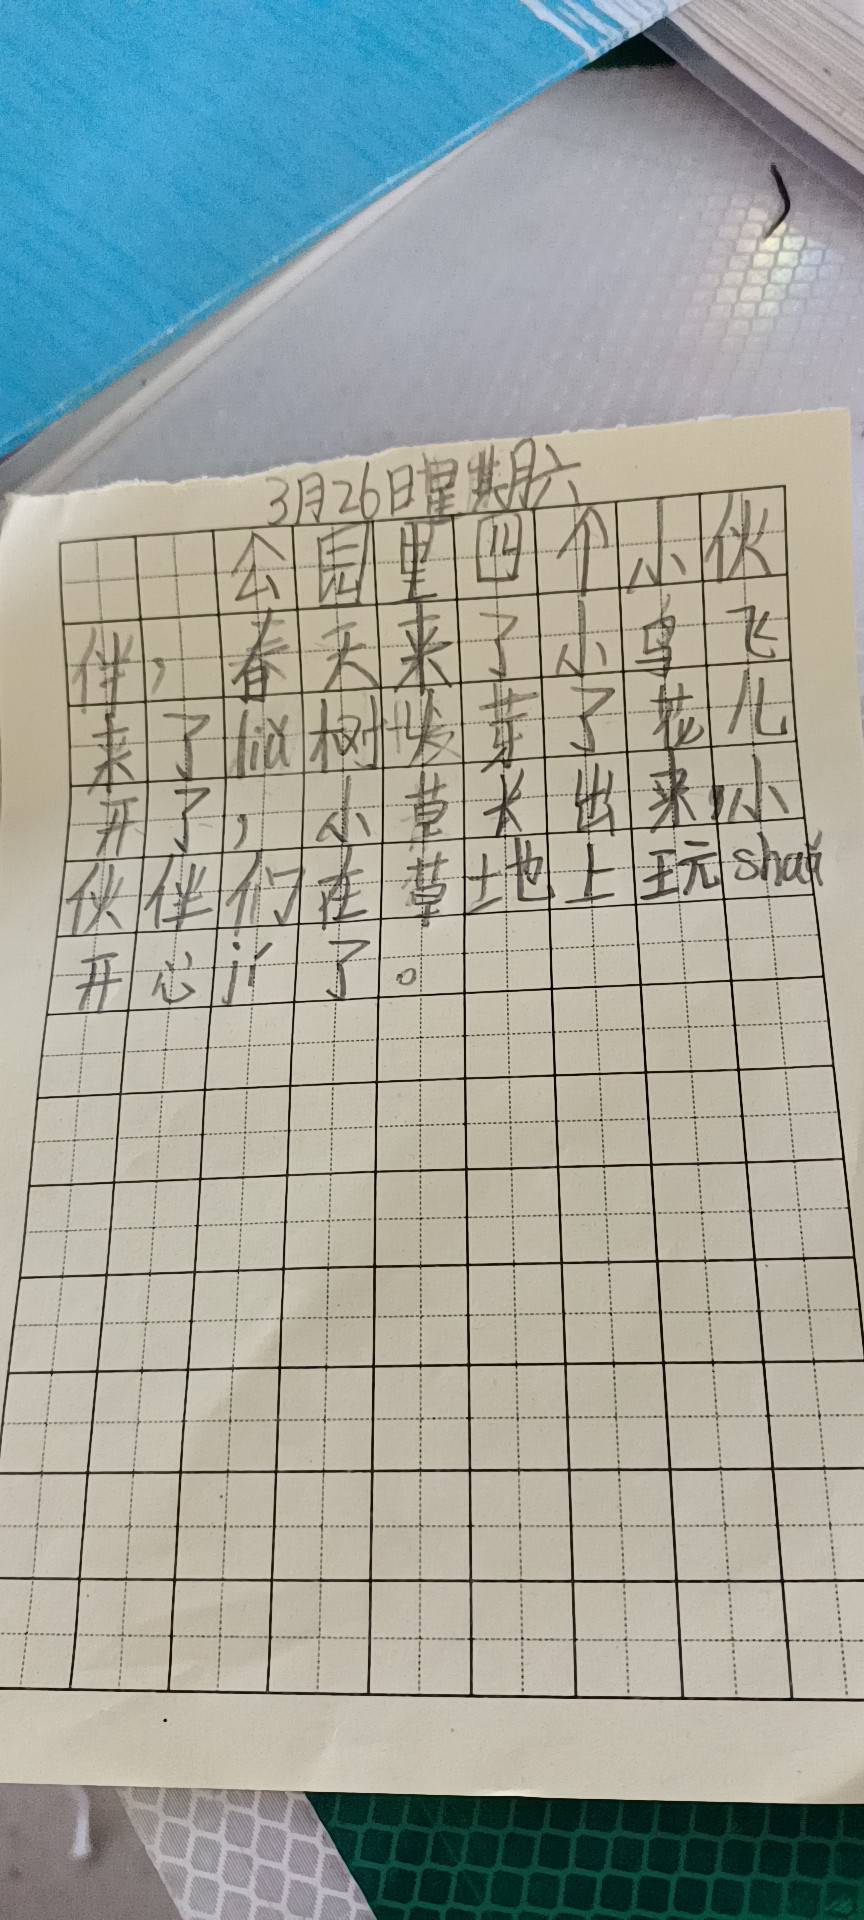 3月26日星期六
公园里四个小伙
伴，春天来了小鸟飞
来了liǔ树发芽了花儿
开了，小草长出来，小
伙伴们在草地上玩shuǎ
开心jí了。